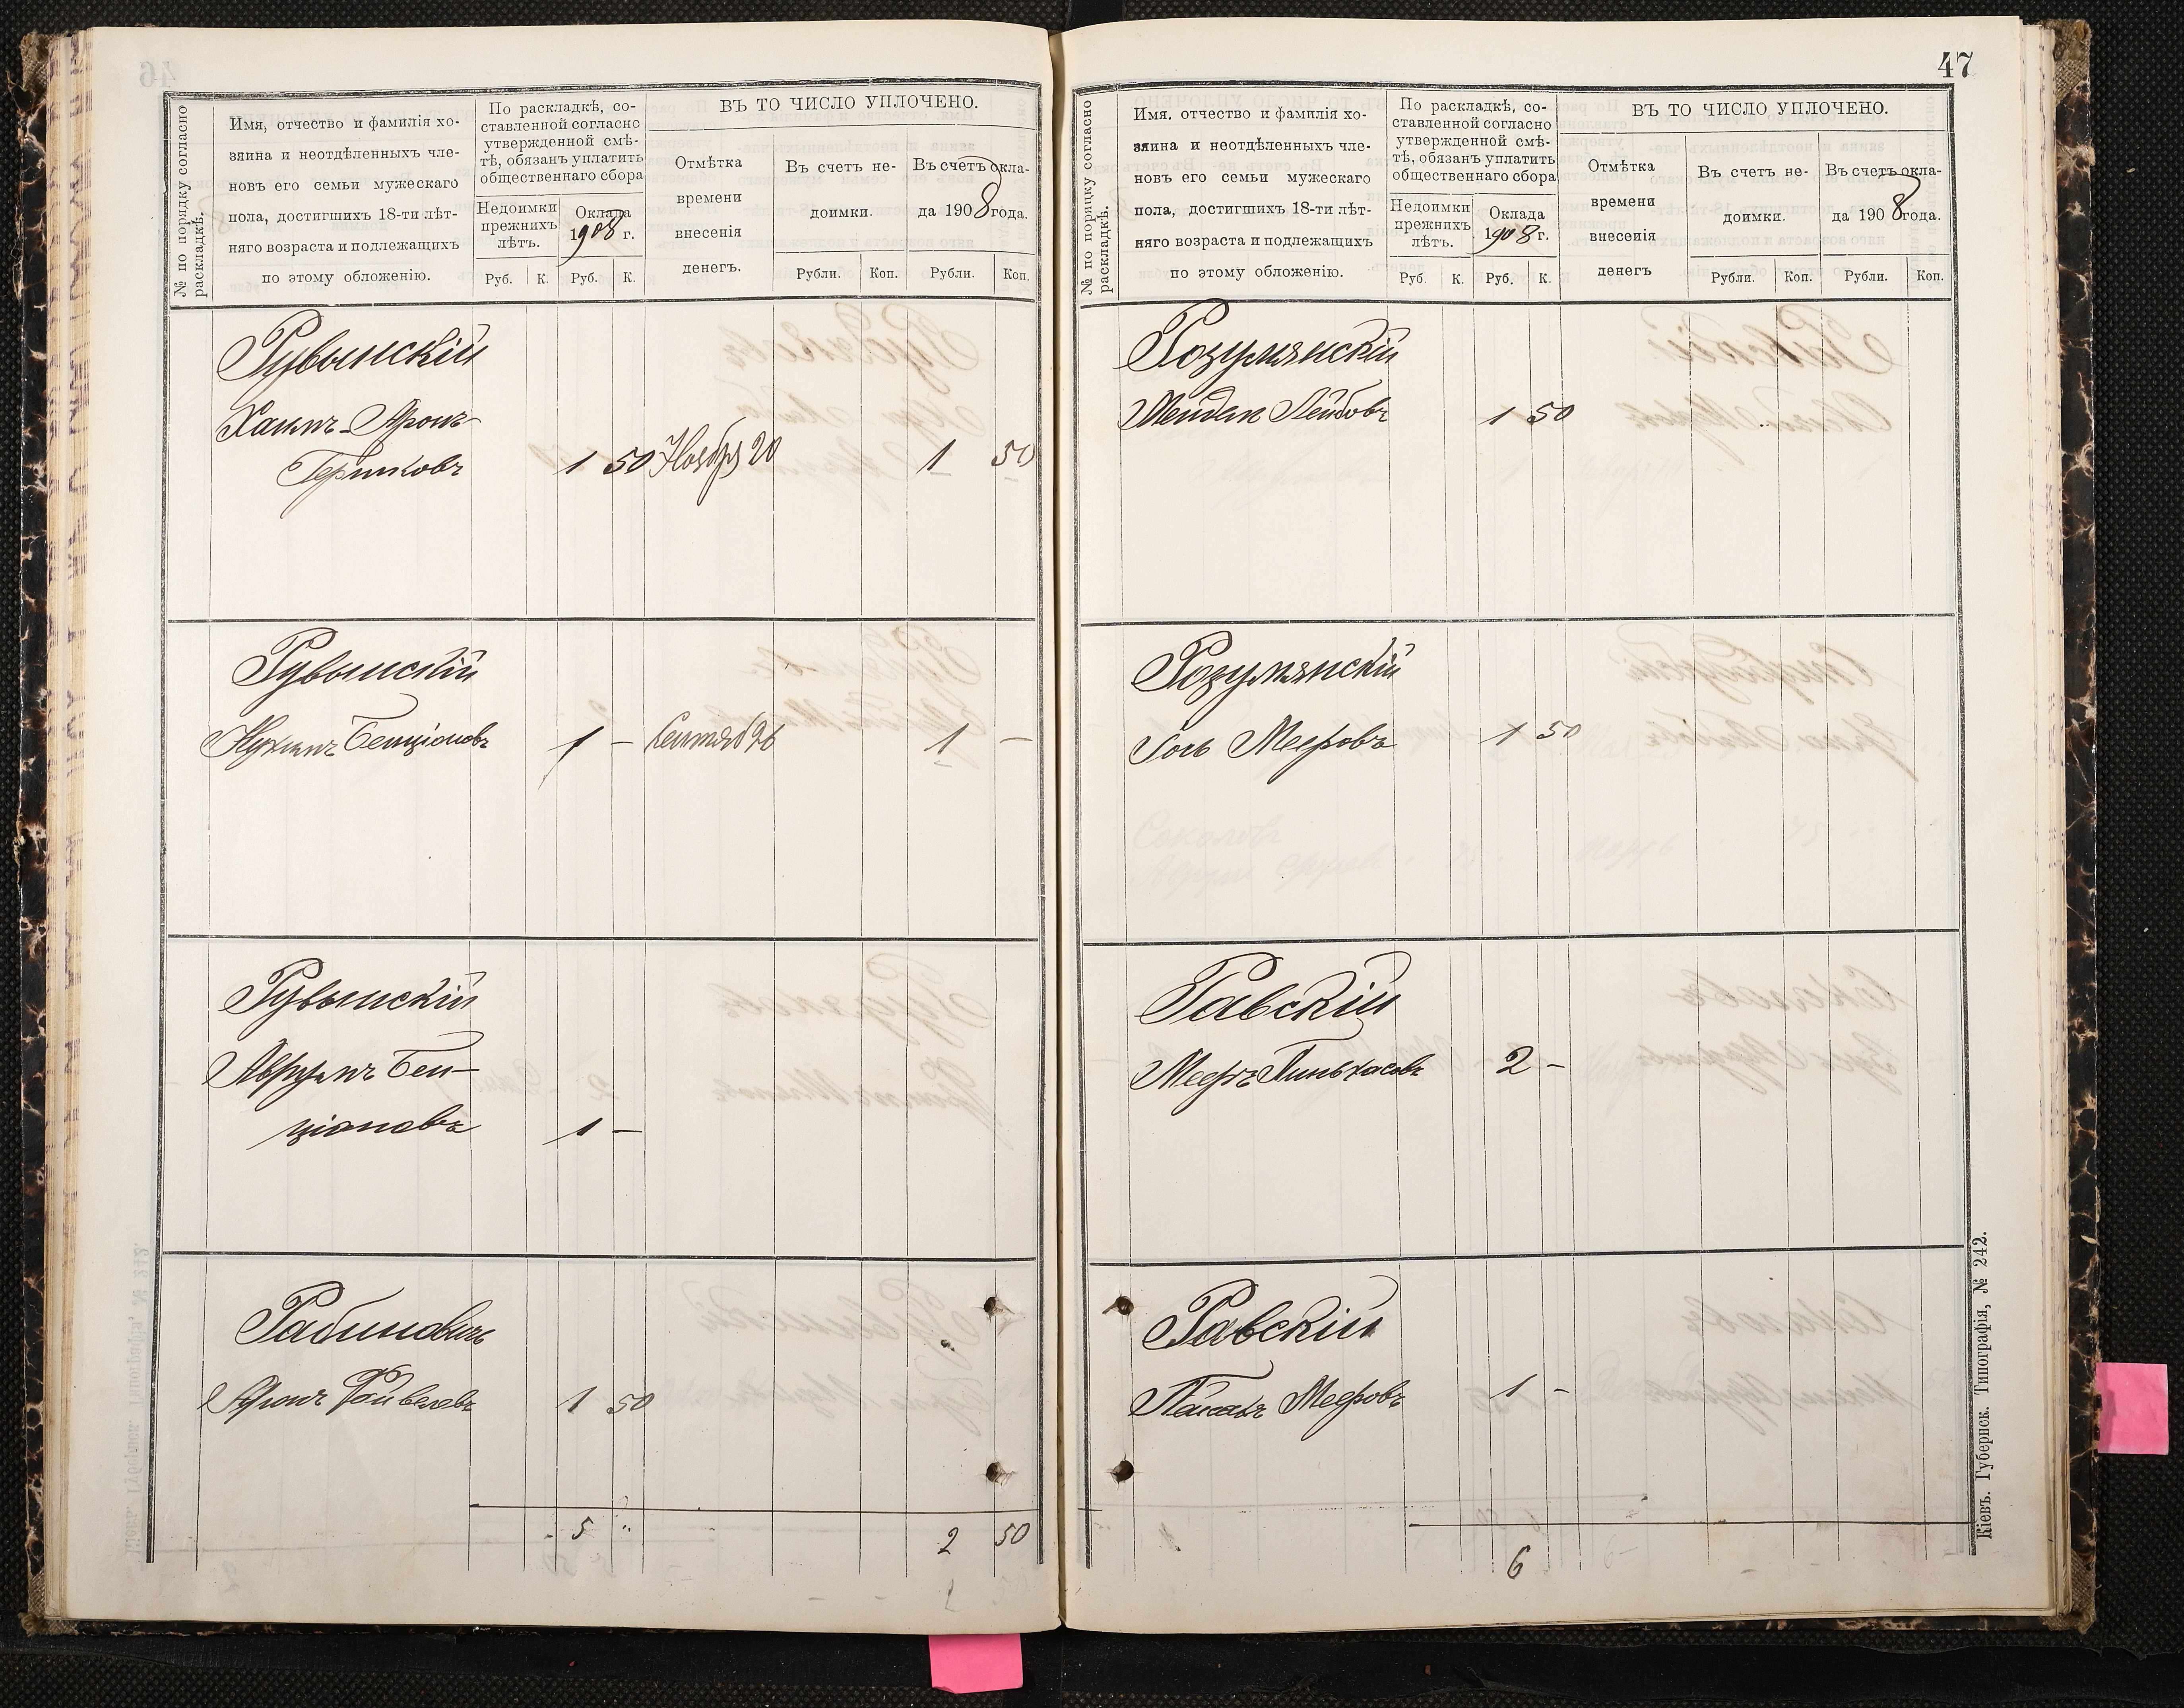 № по порядку согласно
раскладкѣ.
Имя, отчество и фамилія хо-
зяина и неотдѣленныхъ чле-
новъ его семьи мужескаго
пола, достигшихъ 18-ти лѣт-
няго возраста и подлежащихъ
по этому обложенію.
По раскладкѣ, со-
ставленной согласно
утвержденной смѣ-
тѣ, обязанъ уплатить
общественнаго сбора
Недоимки
прежнихъ
лѣтъ.
Оклада
1908 г.
Руб. К. Руб. К.
ВЪ ТО ЧИСЛО УПЛОЧЕНО.
Отмѣтка
времени
внесенія
денегъ.
Въ счетъ не-
доимки.
Въ счетъ окла-
да 1908 года.
Рубли. Коп. Рубли. Коп.
Рувынскій
Хаимъ-Аронъ
Гершковъ 1 50 Ноябр 20 1 50
Рувынскій
Нухимъ Бенціоновъ 1 – Сентяб 26 1 –
Рувынскій
Аврумъ Бен-
ціоновъ 1 –
Рабиновичъ
Аронъ Файвелевъ 1 50
5 " 2 50
47
№ по порядку согласно
раскладкѣ.
Имя, отчество и фамилія хо-
зяина и неотдѣленныхъ чле-
новъ его семьи мужескаго
пола, достигшихъ 18-ти лѣт-
няго возраста и подлежащихъ
по этому обложенію.
По раскладкѣ, со-
ставленной согласно
утвержденной смѣ-
тѣ, обязанъ уплатить
общественнаго сбора
Недоимки
прежнихъ
лѣтъ.
Оклада
1908 г.
Руб. К. Руб. К.
ВЪ ТО ЧИСЛО УПЛОЧЕНО.
Отмѣтка
времени
внесенія
денегъ
Въ счетъ не-
доимки.
Въ счетъ окла-
да 1908 года.
Рубли. Коп. Рубли. Коп.
Розумянскій
Мендель Лейбовъ 1 50
Розумянскій
Іось Мееровъ 1 50
Равскій
Мееръ Пиньхасовъ 2 –
Равскій
Мееровъ 1 –
6
Кіевъ. Губернск. Типографія, № 242.